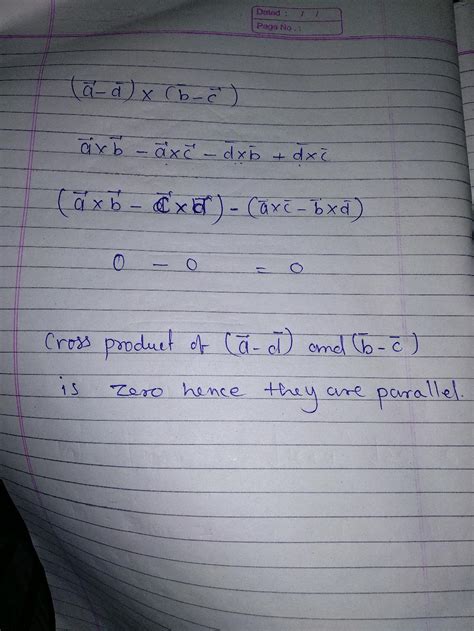 Dated : / /
Page No. :
(a⃗-d⃗) × (b̄-c⃗)
a⃗×b⃗ - a⃗×c⃗ - d̄×b̄ + d̄×c̄
(a⃗×b⃗ - c⃗×d⃗) - (ā×c̄ - b̄×d̄)
0 - 0 = 0
Cross product of (ā-d̄) and (b̄-c̄)
is zero hence they are parallel.